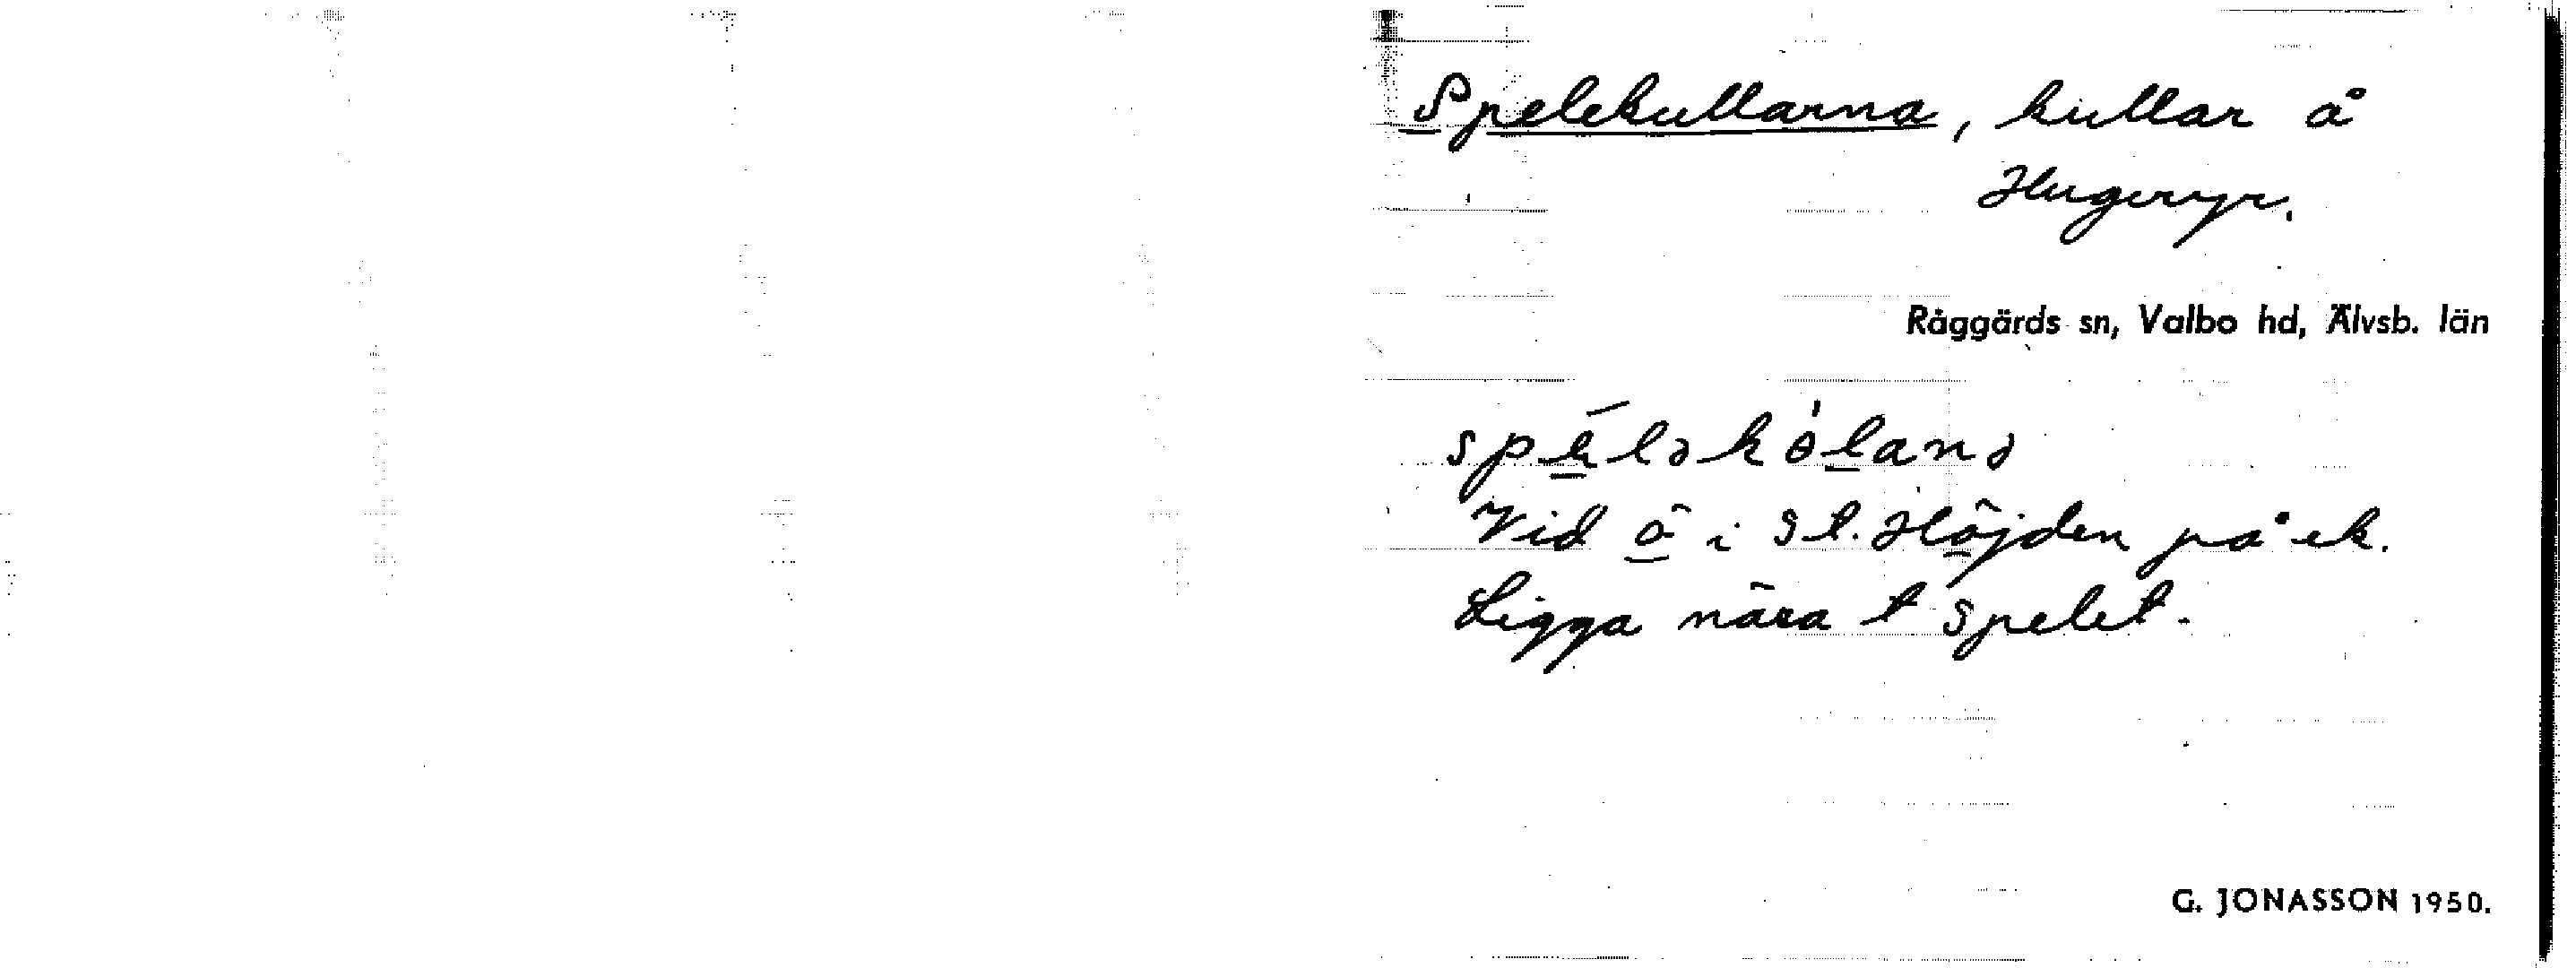 Spelekullarna, kullar å
Hugeryr.
Råggärds sn, Valbo hd, Älvsb. län
Vid ö i St. Höjden på ek.
Ligga nära t Spelet.
G. JONASSON 1950.